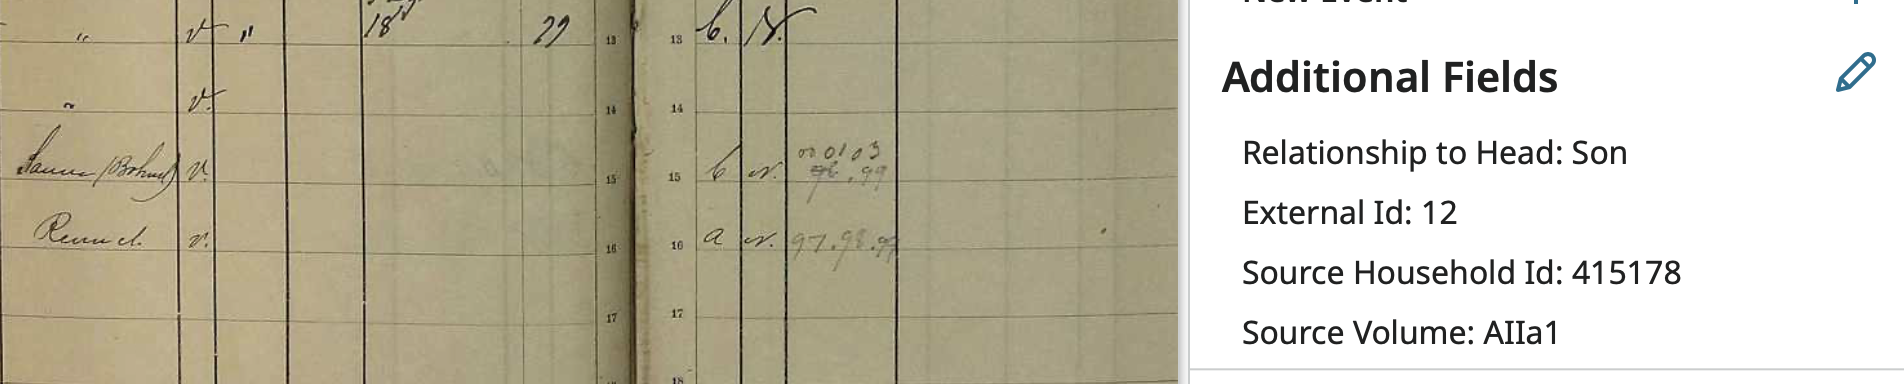 " v " 18 29 13
" v. 14
Sanna (Bohusl) v. 15
v. 16
17
13 b. N.
14
00 01 03
15 b n. 98. 99
16 a n. 97. 98. 99
17
18
New Event
Additional Fields
Relationship to Head: Son
External Id: 12
Source Household Id: 415178
Source Volume: AIIa1